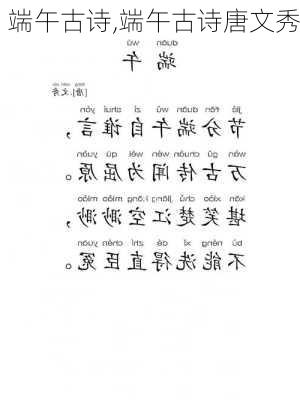 端午古诗,端午古诗唐文秀
duān wǔ
端 午
[唐] 文秀
jié fēn duān wǔ zì shuí yán
节分端午自谁言，
wàn gǔ chuán wén wèi qū yuán
万古传闻为屈原。
kān xiào chǔ jiāng kōng miǎo miǎo
堪笑楚江空渺渺，
bù néng xǐ dé zhí chén yuān
不能洗得直臣冤。